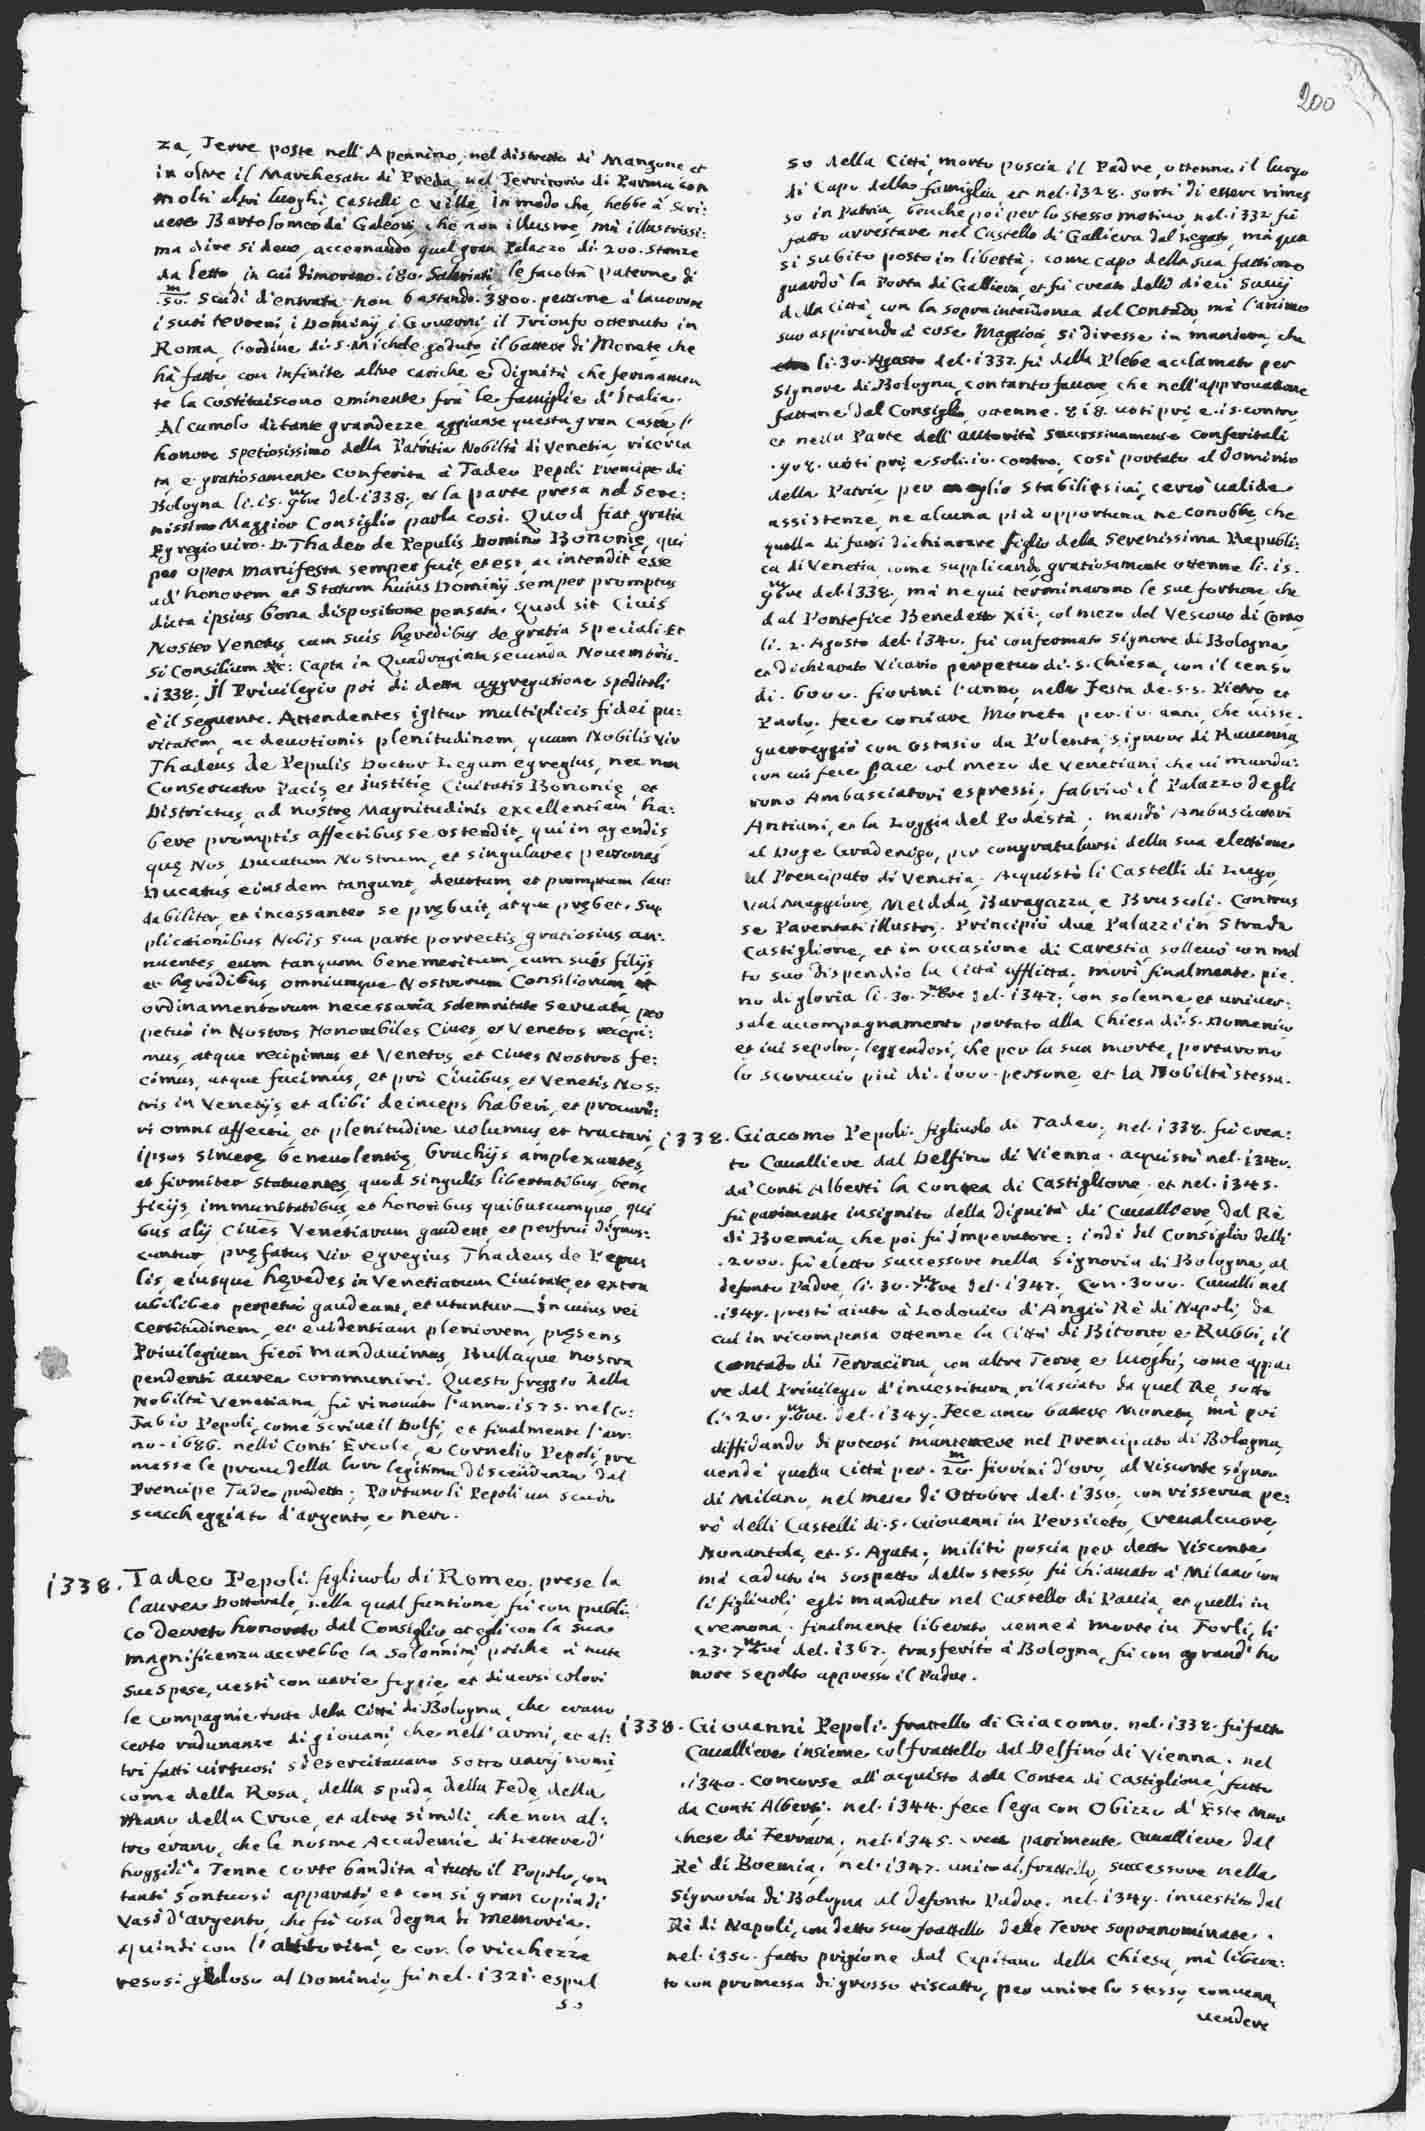 200
za, Terre poste nell'Apennino, nel distretto di Mangone et
in oltre il Marchesato di Preda nel Territorio di Parma con
molti altri luoghi, Castelli, e Ville, in modo che, hebbe à scri:
uere Bartolomeo dà Galeoni, che non illustre, mà illustrissi:
ma dire si deue, accennando quel gran Palazzo di 200. stanze
da letto, in cui dimorano .180. Salariati, le facoltà paterne di
.50.m Scudi d'entrata; non bastando .3800. persone à lauorare
i suoi terreni, i Dominij, i Gouerni, il Trionfo ottenuto in
Roma, l'ordine di S. Michele goduto, il battere di Monete, che
hà fatto, con infinite altre cariche, e dignità che fermamen
te la costituiscono eminente frà le famiglie d'Italia.
Al cumolo di tante grandezze aggiunse questa gran Casa l'
honore spetiosissimo della Patritia Nobiltà di Venetia, ricerca
ta e gratiosamente conferita à Tadeo Pepoli Prencipe di
Bologna li .15. 9mbre del .1338., et la parte presa nel Sere:
nissimo Maggior Consiglio parla cosi. Quod fiat gratia
Egregio uiro .D. Thadeo de Pepulis Domino Bononię, qui
per opera manifesta semper fuit, et est, ac intendit esse
ad honorem et Statum huius Dominij semper promptus
dicta ipsius bona dispositione pensata. Quod sit Ciuis
Noster Venetus cum suis hęredibus de gratia speciali. Et
si Consilium &c: Capta in Quadraginta secunda Nouembris.
.1338. Il Priuilegio poi di detta aggregatione speditoli
è il seguente. Attendentes igitur multiplicis fidei pu:
ritatem, ac deuotionis plenitudinem, quam Nobilis Vir
Thadeus de Pepulis Doctor Legum egregius, nec non
Conseruator Pacis, et Justitię Ciuitatis Bononię, et
Districtus, ad nostrę Magnitudinis excellentiam ha:
bere promptis affectibus se ostendit, qui in agendis
quę Nos, Ducatum Nostrum, et singulares personas
Ducatus eiusdem tangunt, deuotum, et promptum lau:
dabiliter, et incessanter se prębuit, atque prębet. Sup
plicationibus Nobis sua parte porrectis gratiosius an:
nuentes, eum tanquam benemeritum, cum suis filijs,
et hęredibus, omniumque Nostrorum Consiliorum, et
ordinamentorum necessaria solemnitate seruata, per
petuò in Nostros Honorabiles Ciues, et Venetos recepi:
mus, atque recipimus, et Venetos, et Ciues Nostros fe:
cimus, atque facimus, et prò Ciuibus, et Venetis Nos:
tris in Venetijs et alibi deinceps haberi, et procura:
ri omni affectu, et plenitudine uolumus, et tractari,
ipsos sincerę beneuolentię brachijs amplexantes,
et firmiter statuentes, quod singulis libertatibus, bene
ficijs, immunitatibus, et honoribus quibuscumque, qui
bus alij Ciues Venetiarum gaudent, et perfrui dignos:
cuntur, pręfatus Vir egregius Thadeus de Pepu
lis, eiusque hęredes in Venetiarum Ciuitate, et extra
ubilibet perpetuò gaudeant, et utantur. In cuius rei
certitudinem, et euidentiam pleniorem, pręsens
Priuilegium fieri mandauimus, Bullaque nostra
pendenti aurea communiri. Questo freggio della
Nobiltà Venetiana, fù rinouato l'anno .1575. nel Co:
Fabio Pepoli, come scriue il Dolfi, et finalmente l'an:
no .1686. nelli Conti Ercole, e Cornelio Pepoli, pre
messe le proue della loro legitima discendenza dal
Prencipe Tadeo predetto; Portano li Pepoli un scudo
scaccheggiato d'argento, e nero.
1338. Tadeo Pepoli. figliuolo di Romeo, prese la
laurea Dottorale, nella qual funtione fù con publi:
co Decreto honorato dal Consiglio, et egli con la sua
magnificenza accrebbe la solennità, poiche à tutte
sue spese, uestì con uarie foggie, et diuersi colori
le Compagnie tutte della Città di Bologna, che erano
certe radunanze di giouani, che nell'armi, et al:
tri fatti uirtuosi s'esercitauano sotto uarij nomi,
come della Rosa, della Spada, della Fede, della
Mano, della Croce, et altre simili, che non al:
tro erano, che le nostre Accademie di Lettere d'
hoggidì. Tenne corte bandita à tutto il Popolo, con
tanti sontuosi apparati, et con si gran copia di
Vasi d'argento, che fù cosa degna di memoria.
Quindi con l'auttorità, e con le ricchezze
resosi geloso al Dominio, fù nel .1321. espul
so
so della Città, morto poscia il Padre, ottenne il luogo
di Capo della famiglia, et nel .1328. sortì di essere rimes
so in Patria, benche poi per lo stesso motiuo, nel .1332. fù
fatto arrestare nel Castello di Galliera dal Legato, mà qua
si subito posto in libertà; come capo della sua fattione
guardò la Porta di Galliera, et fù creato delli dieci Sauij
della Città, con la sopraintendenza del Contado, mà l'animo
suo aspirando à cose Maggiori si diresse in maniera, che
li .30. Agosto del .1337. fù della Plebe acclamato per
Signore di Bologna, con tanto fauore, che nell'approuatione
fattane dal Consiglio, ottenne .818. uoti prò, e .15. contro,
et nella Parte dell'auttorità successiuamente conferitali
.908. uoti prò, e soli .10. contro, così portato al dominio
della Patria, per meglio stabilirsiui, cercò ualide
assistenze, ne alcuna più opportuna ne conobbe, che
quella di farsi dichiarare figlio della Serenissima Republi:
ca di Venetia, come supplicando gratiosamente ottenne li .15.
9mbre del .1338., mà ne qui terminarono le sue fortune, che
dal Pontefice Benedetto XII., col mezo del Vescouo di Como
li .2. Agosto del .1340. fù confermato Signore di Bologna,
et dichiarato Vicario perpetuo di S. Chiesa, con il censo
di .6000. fiorini l'anno, nella Festa de S.S. Pietro, et
Paolo. fece coniare Moneta per .10. anni, che uisse.
guerreggiò con Ostasio da Polenta, Signore di Rauenna,
con cui fece pace col mezo de Venetiani che ui manda:
rono Ambasciatori espressi, fabricò il Palazzo degli
Antiani, et la Loggia del Podestà; mandò Ambasciatori
al Doge Gradenigo, per congratularsi della sua elettione
al Prencipato di Venetia. Acquistò li Castelli di Lugo,
Val Maggiore, Meldola, Baragazza, e Bruscoli. Contras
se Parentati illustri. Principiò due Palazzi in Strada
Castiglione, et in occasione di Carestia, solleuò con mol
to suo dispendio la Città afflitta; morì finalmente pie:
no di gloria li .30. 7mbre del .1347., con solenne, et uniuer:
sale accompagnamento portato alla Chiesa di S. Domenico
et iui sepolto, leggendosi, che per la sua morte, portarono
lo scoruccio più di .1000. persone, et la Nobiltà stessa.
1338. Giacomo Pepoli. figliuolo di Tadeo, nel .1338. fù crea:
to Cauallieve dal Delfino di Vienna. acquistò nel .1340.
dà Conti Alberti la Contea di Castiglione, et nel .1345.
fù parimente insignito della dignità di Caualliere dal Rè
di Boemia, che poi fù Imperatore: indi del Consiglio delli
.2000. fù eletto successore nella Signoria di Bologna, al
defonto Padre, li .30. 7mbre del .1347. Con .3000. Caualli nel
.1349. prestò aiuto à Lodouico d'Angiò Rè di Napoli, da
cui in ricompensa ottenne la Città di Bitonto, e Rubbi, il
Contado di Terracina, con altre Terre, e luoghi, come appa:
re dal Priuilegio d'inuestitura, rilasciato da quel Re, sotto
li .20. 9mbre del .1349. Fece anco battere Moneta, mà poi
diffidando di potersi mantenere nel Prencipato di Bologna,
uendè quella Città per .20.m fiorini d'oro, al Visconte Signor
di Milano, nel mese di Ottobre del .1350., con risserua pe:
rò delli Castelli di S. Giouanni in Persiceto, Creualcuore,
Nonantola, et S. Agata; militò poscia per detto Visconte,
mà caduto in sospetto dello stesso, fù chiamato à Milano con
li figliuoli, egli mandato nel Castello di Pauia, et quelli in
Cremona. finalmente liberato, uenne à morte in Forlì, li
.23. 7mbre del .1367., trasferito à Bologna, fù con grand'ho
nore sepolto appresso il Padre.
1338. Giouanni Pepoli. frattello di Giacomo, nel .1338. fù fatto
Caualliere insieme col frattello dal Delfino di Vienna; nel
.1340. concorse all'acquisto della Contea di Castiglione, fatto
da Conti Alberti. nel .1344. fece lega con Obizzo d'Este Mar
chese di Ferrara; nel .1345. creato parimente Caualliere dal
Rè di Boemia; nel .1347. unito al frattello, successore nella
Signoria di Bologna al defonto Padre. nel .1349. inuestito dal
Rè di Napoli, con detto suo frattello delle Terre sopranominate.
nel .1350. fatto prigione dal Capitano della Chiesa, mà libera:
to con promessa di grosso riscatto, per unire lo stesso, conuenne
uendere